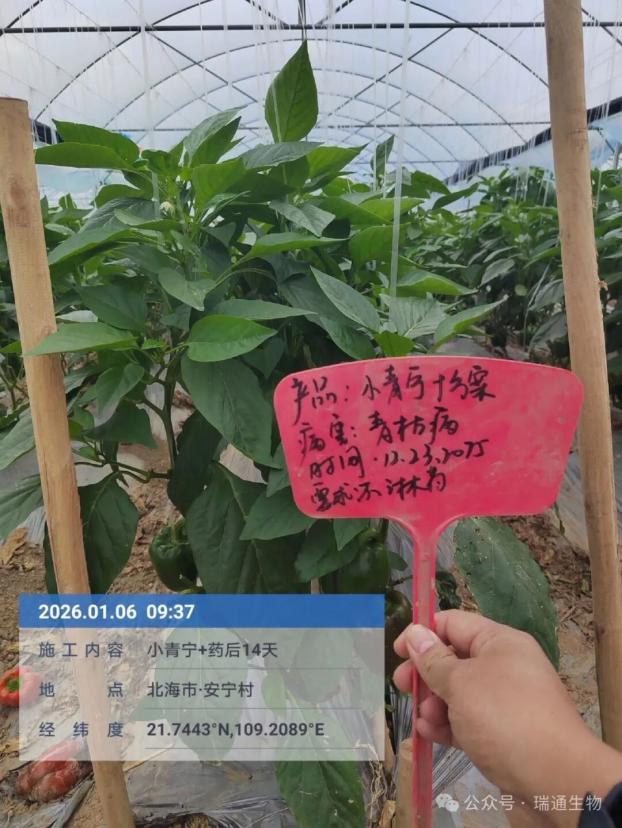 产品：小青宁+鸟窝
病害：青枯病
时间：12.23.2025
要求：灌淋药
2026.01.06 09:37
施工内容 小青宁+药后14天
地点 北海市·安宁村
经纬度 21.7443°N,109.2089°E
公众号·瑞通生物